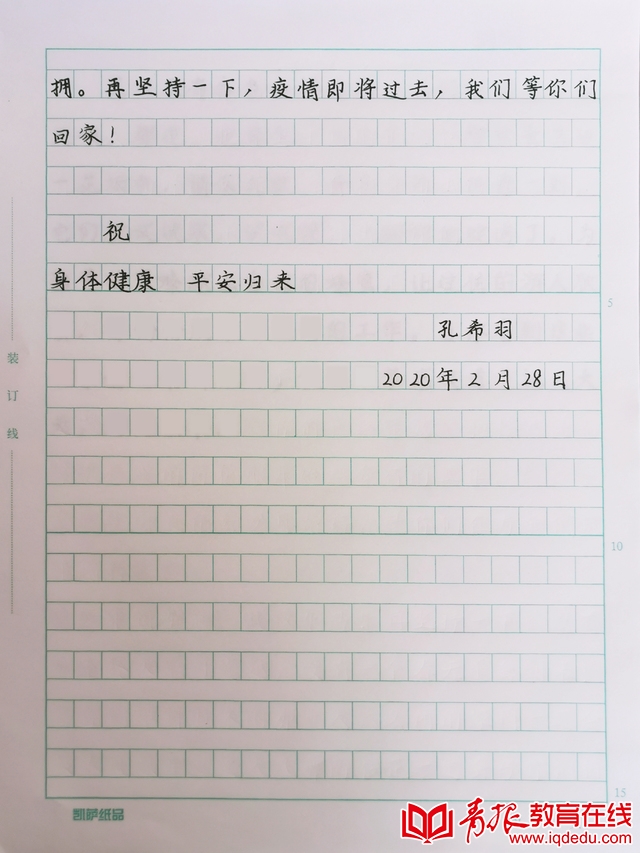 拥。再坚持一下，疫情即将过去，我们等你们
回家！
祝
身体健康 平安归来
5
孔希羽
2020年2月28日
装订线
10
15
凯萨纸品
青报教育在线
www.iqdedu.com